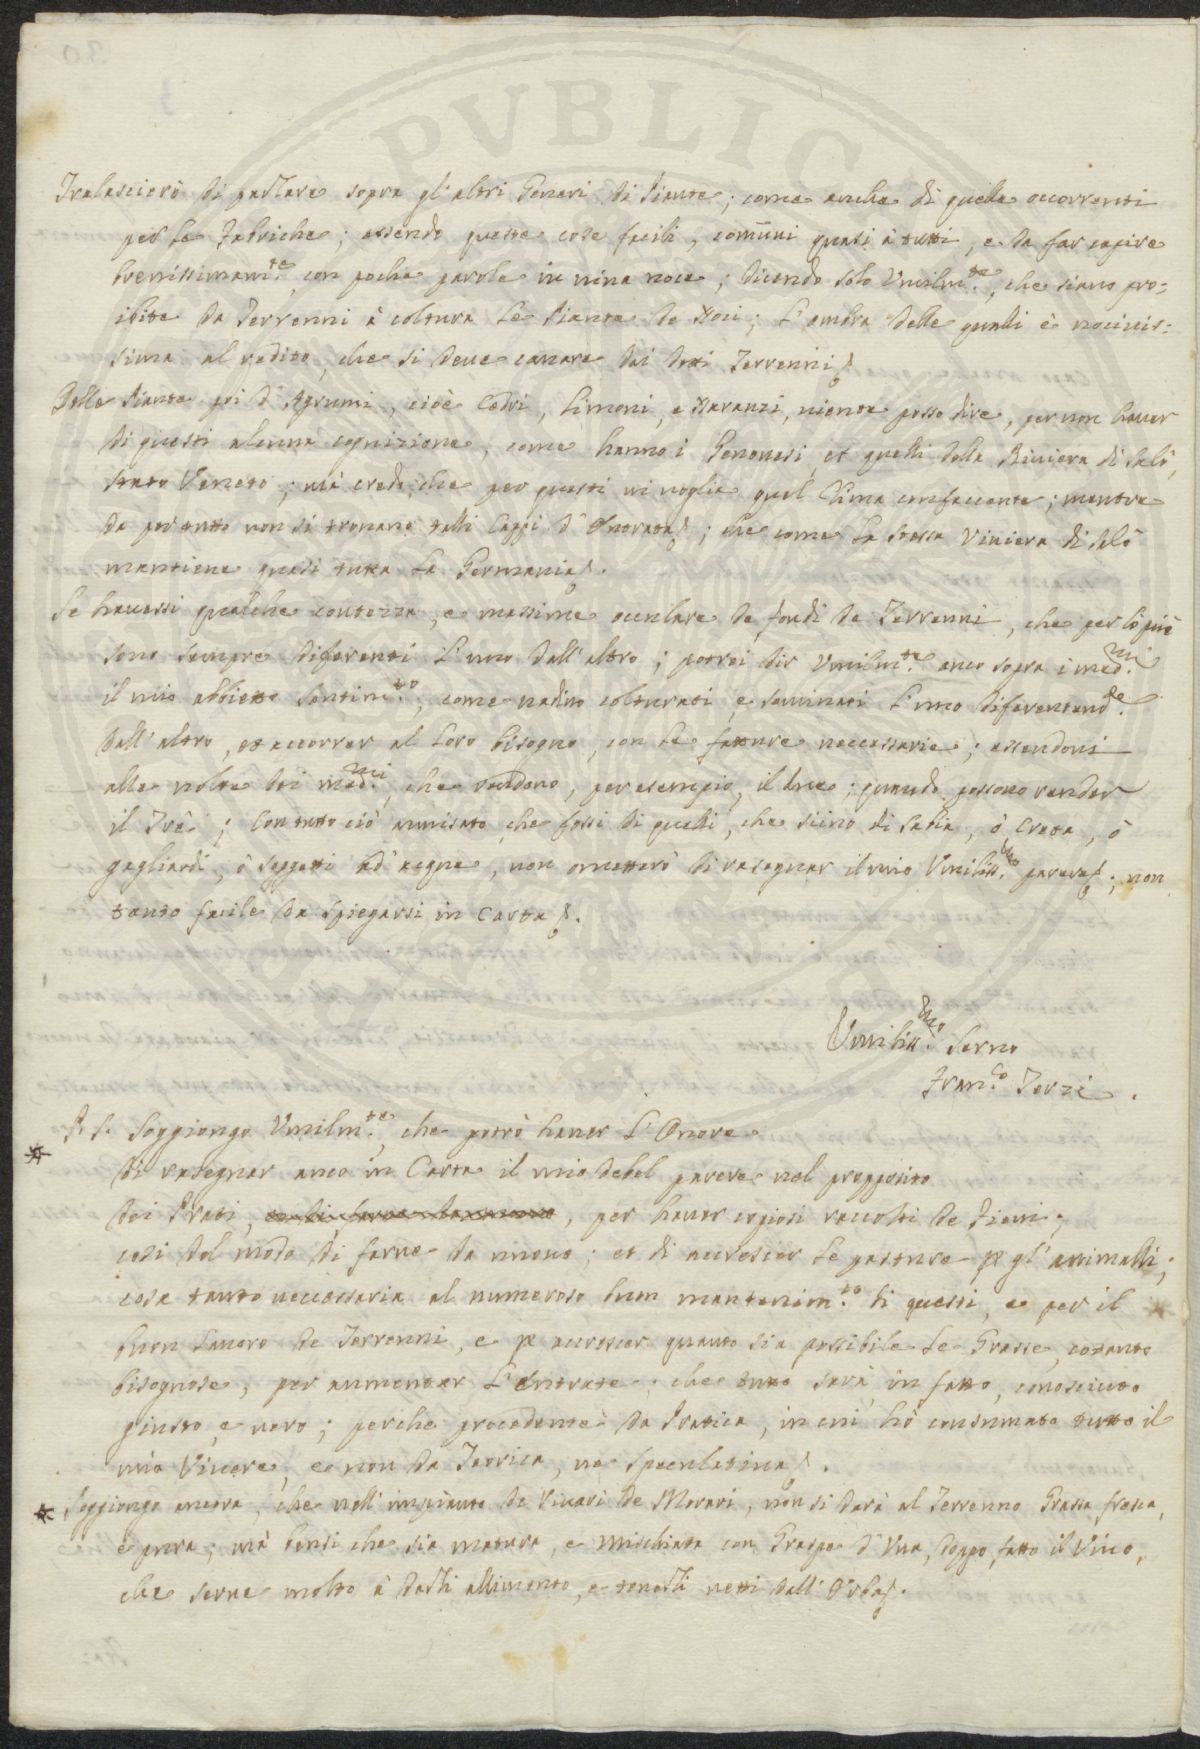 PVBLIC
Tralascierò di parlare sopra gl'altri Generi di Piante; come anche di quelle occorrenti
per le Fabriche; essendo queste cose facili, comūni quasi à tutti, e da far capire
brevissimam.te con poche parole in viva voce; dicendo solo Vmilm.te, che siano pro=
ibite da Terrenni à coltura le Piante de Noci; l'ombra delle qualli è nocivis=
sima al redito, che si deve cavare dai detti Terrenni.
Delle Piante poi d'Agrumi, cioè Cedri, Limoni, e Naranzi, niente posso dire, per non haver
di questi alcuna cognizione, come hanno i Genovesi, et quelli della Riviera di Salò,
stato Veneto; mà credo, che per questi vi voglia quel Clima confacente; mentre
da per tutto non si trovano talli Cappi d'Entrata; che come la stessa Riviera di Salò
mantiene quasi tutta la Germania.
Se havessi qualche contezza, e massime oculare de fondi de Terrenni, che per lò più
sono sempre diferenti l'uno dall'altro; potrei dir Vmilm.te anco sopra i med.mi
il mio abbietto sentim.to, come vadino colturati, e seminati l'uno diferentem.te
dall'altro, et accorrer al loro bisogno, con le fatture neccessarie; essendovi
alle volte dei med.mi, che rendono, per esempio, il due; quando possono render
il Trè; Con tutto ciò avvisato, che fossi di quelli, che siino di Sabia, ò Creta, ò
gagliardi, ò soggetti ad acque, non ometterò di rasegnar il mio Vmiliss.mo parere; non
tanto facile da spiegarsi in Carta.
Vmiliss.mo Servo
Fran.co Terzi.
P. S. Soggiongo Vmilm.te, che potrò haver l'Onore
di rasegnar anco in Carta il mio debol parere nel propposito
dei Prati, , per haver copiosi raccolti de Fieni;
così del modo di farne da nuovo; et di accrescer le pasture p gl'animalli;
cosa tanto neccessaria al numeroso buon mantenim.to di questi, e per il
buon lavoro de Terrenni, e p accrescer quanto sia possibile le Grasse, cotanto
bisognose, per aumentar l'Entrate; che tutto sarà in fatto, conosciuto
giusto, e vero; perche procedente da Pratica, in cui hò consumato tutto il
mio Vivere, e non da Teorica, ne Speculativa.
Soggiongo ancora, che nell'impianto de Vivari de Morari, non si darà al Terrenno Grassa fresca,
e pura; mà bensì che sia matura, e mischiata con Graspe d'Vva, doppo fatto il Vino,
che serve molto à darli allimento, e tenerli netti dall'Erba.